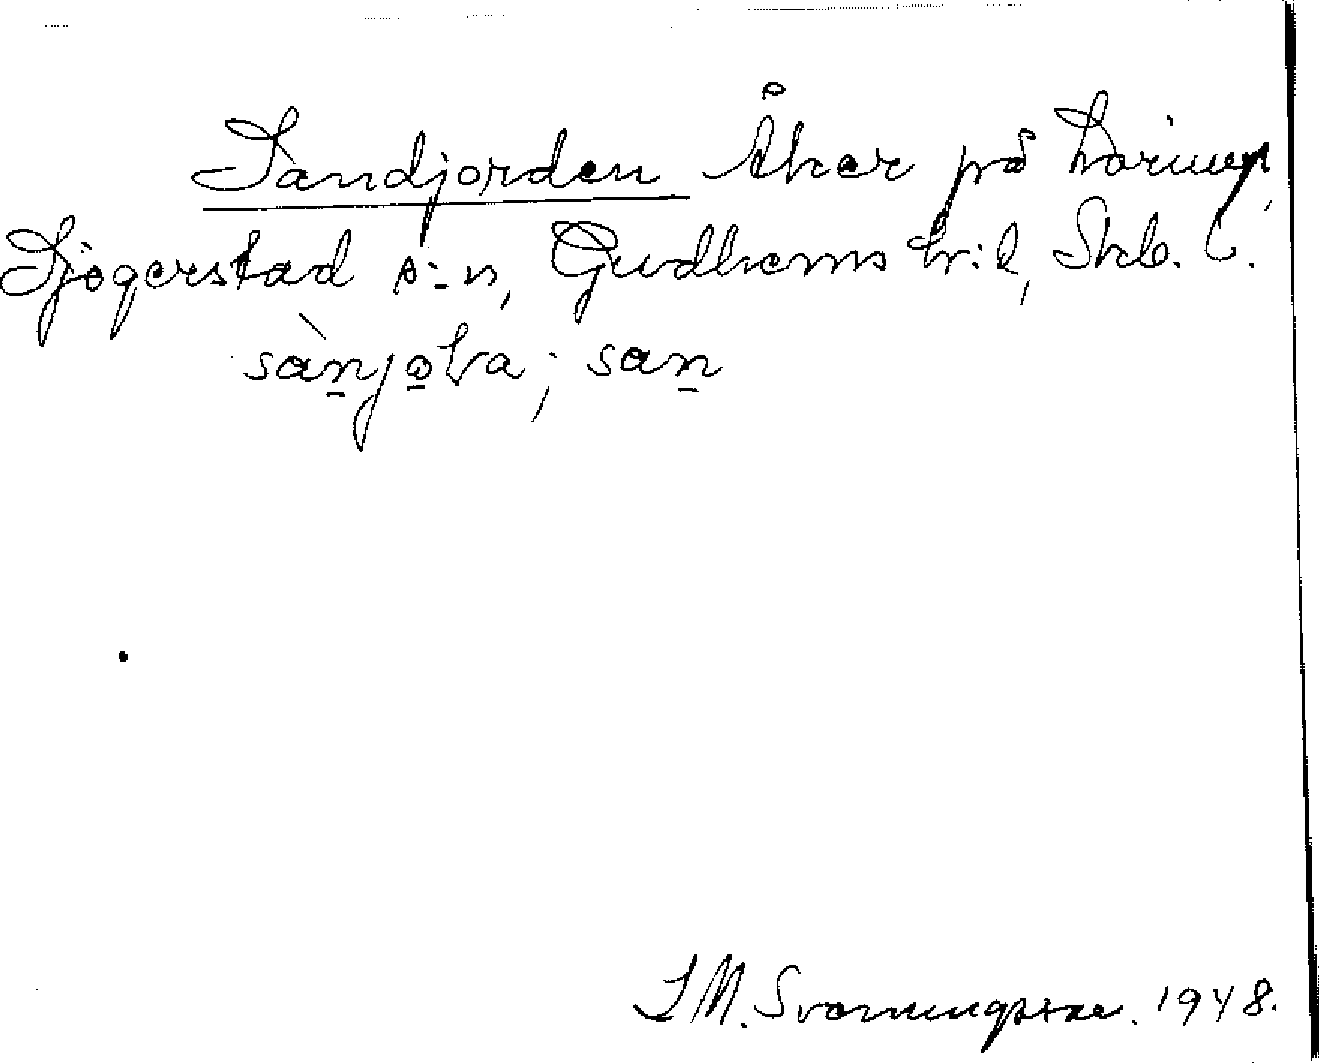 Sandjorden Åker på
Sjogerstad s:n, Gudhems hd, Skb. l.
sànjola; san
I M. Svenningsson. 1948.